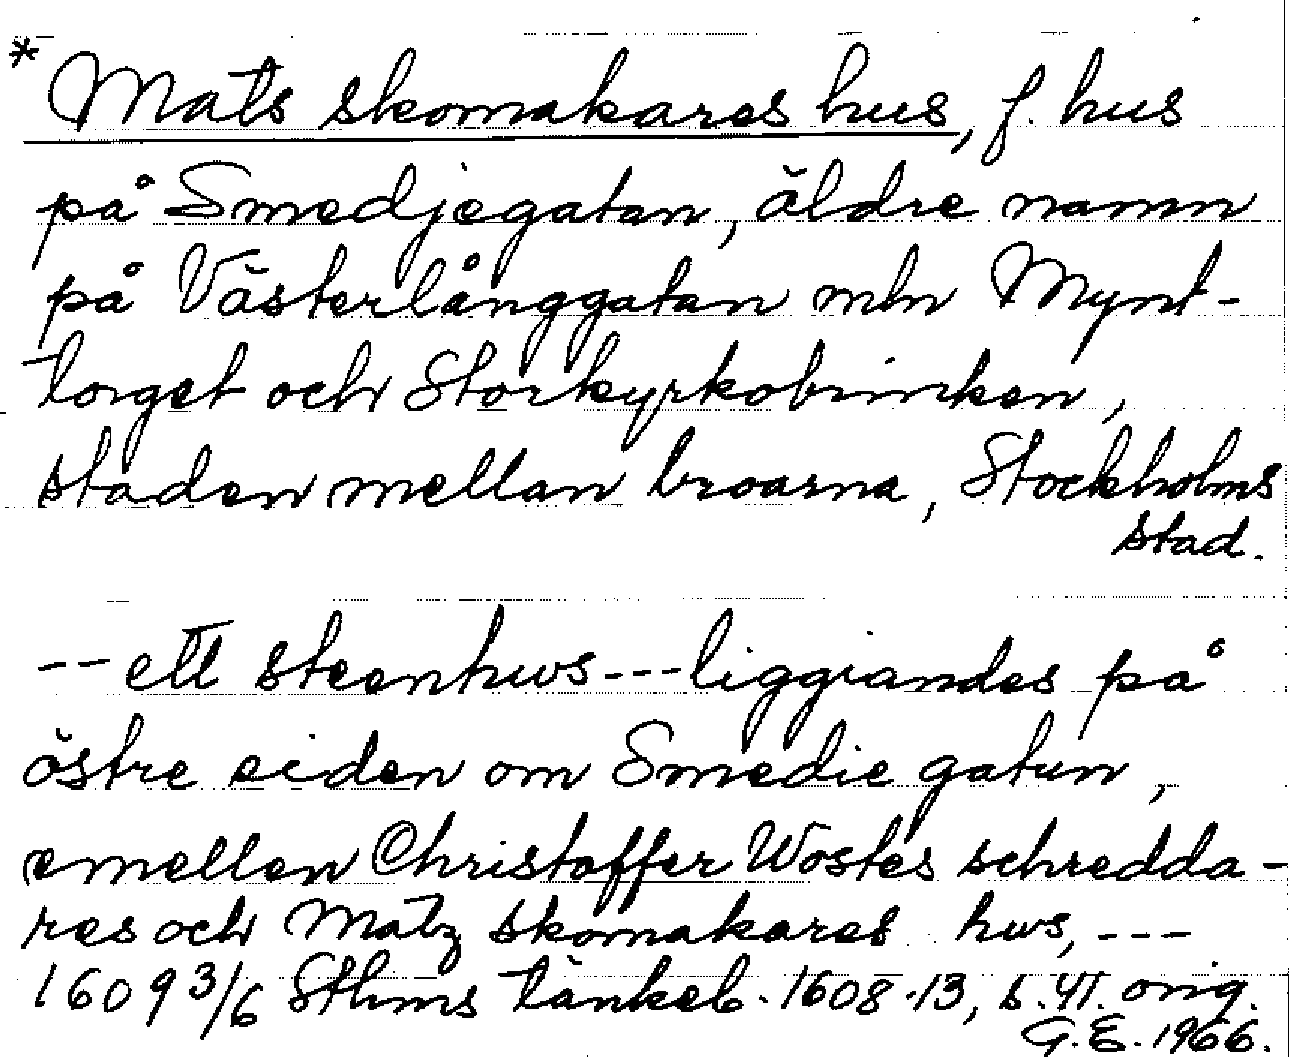 * Mats skomakares hus, f. hus
på Smedjegatan, äldre namn
på Västerlånggatan mln Mynt-
torget och Storkyrkobrinken,
staden mellan broarna, Stockholms
stad.
-- ett steenhws --- liggiandes på
östre siden om Smedie gatun,
emellen Christoffer Wostes schredda-
res och Matz skomakares hws, ---
1609 3/6 Sthms tänkeb. 1608-13, s. orig.
G.E. 1966.